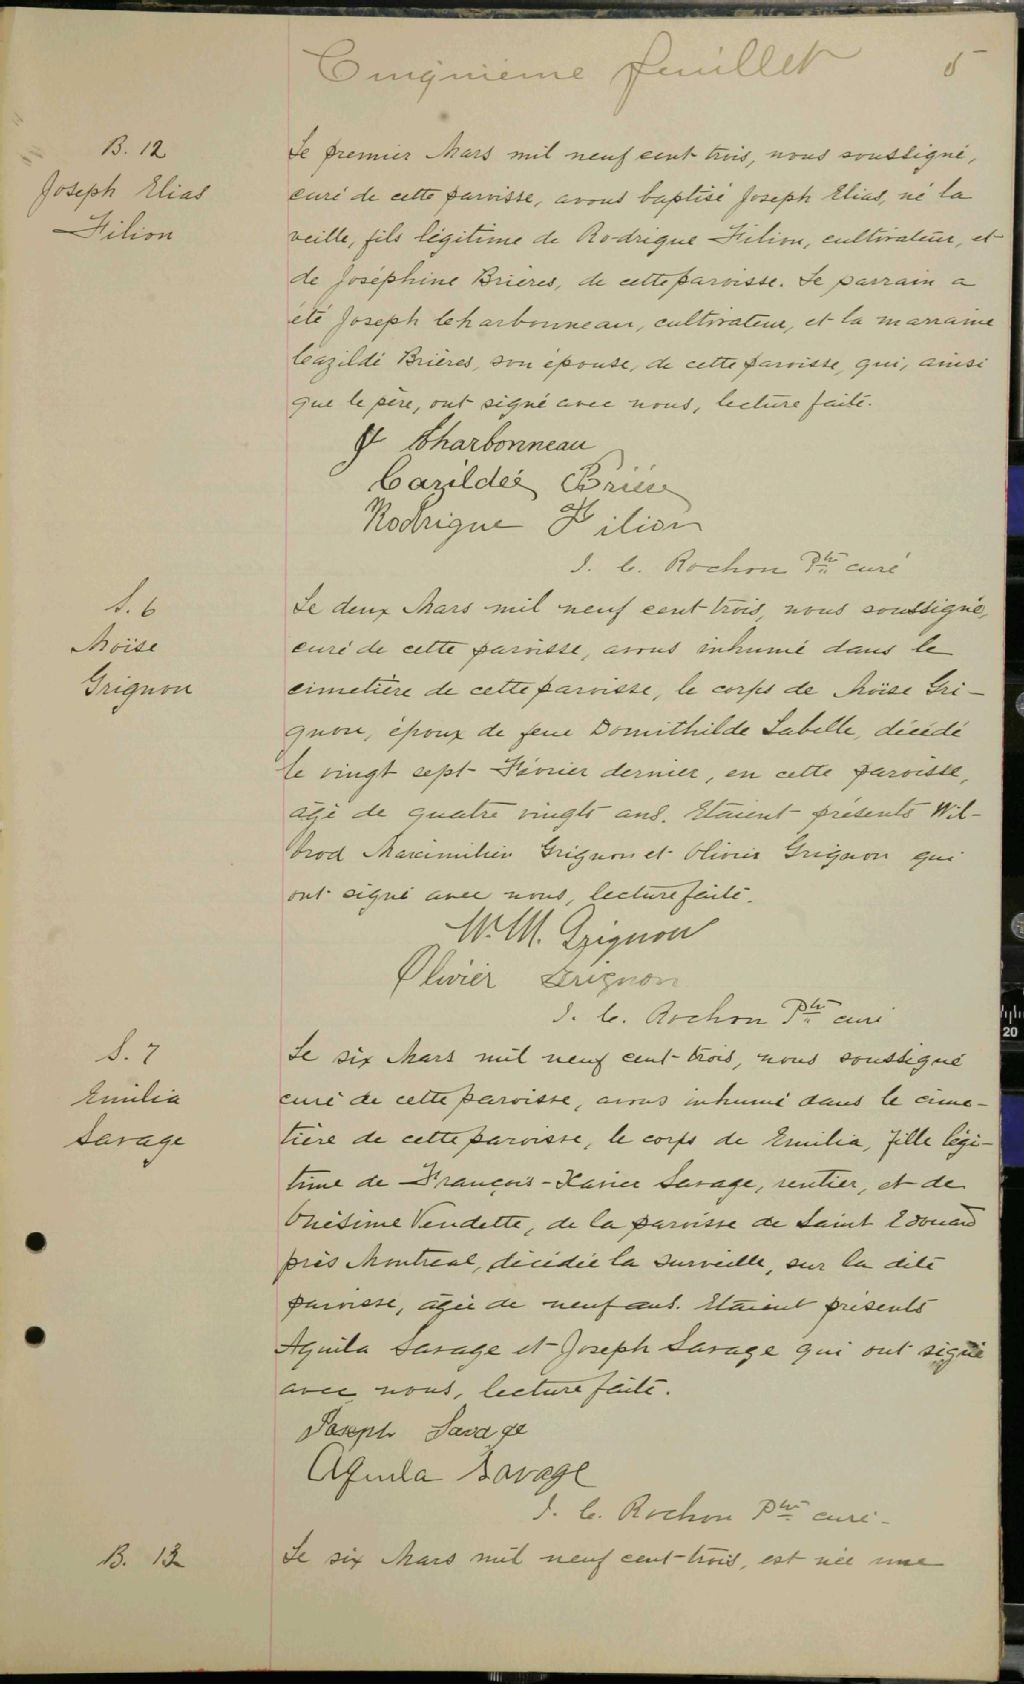 Cinquième feuillet 5
B. 12
Joseph Elias
Filion
Le premier Mars mil neuf cent trois, nous soussigné,
curé de cette paroisse, avons baptisé Joseph Elias, né la
veille, fils légitime de Rodrigue Filion, cultivateur, et
de Joséphine Brières, de cette paroisse. Le parrain a
été Joseph Charbonneau, cultivateur, et la marraine
Cazildé Brières, son épouse, de cette paroisse, qui, ainsi
que le père, ont signé avec nous, lecture faite.
Js Charbonneau
Cazildée Brière
Rodrigue Filion
J. C. Rochon Ptre curé
S. 6
Moïse
Grignon
Le deux Mars mil neuf cent trois, nous soussigné,
curé de cette paroisse, avons inhumé dans le
cimetière de cette paroisse, le corps de Moïse Gri-
gnon, époux de feue Domithilde Labelle, décédé
le vingt sept Février dernier, en cette paroisse,
âgé de quatre vingts ans. Etaient présents Wil-
brod Maximilien Grignon et Olivier Grignon qui
ont signé avec nous, lecture faite.
W. M. Grignon
Olivier Grignon
J. C. Rochon Ptre curé
S. 7
Emilia
Savage
Le six Mars mil neuf cent trois, nous soussigné
curé de cette paroisse, avons inhumé dans le cime-
tière de cette paroisse, le corps de Emilia, fille légi-
time de François-Xavier Savage, rentier, et de
Onésime Vendette, de la paroisse de Saint Edouard
près Montreal, décédée la surveille, sur la dite
paroisse, âgée de neuf ans. Etaient présents
Aquila Savage et Joseph Savage qui ont signé
avec nous, lecture faite.
Joseph Savage
Aquila Savage
J. C. Rochon Ptre curé
B. 13
Le six Mars mil neuf cent trois, est née une
20